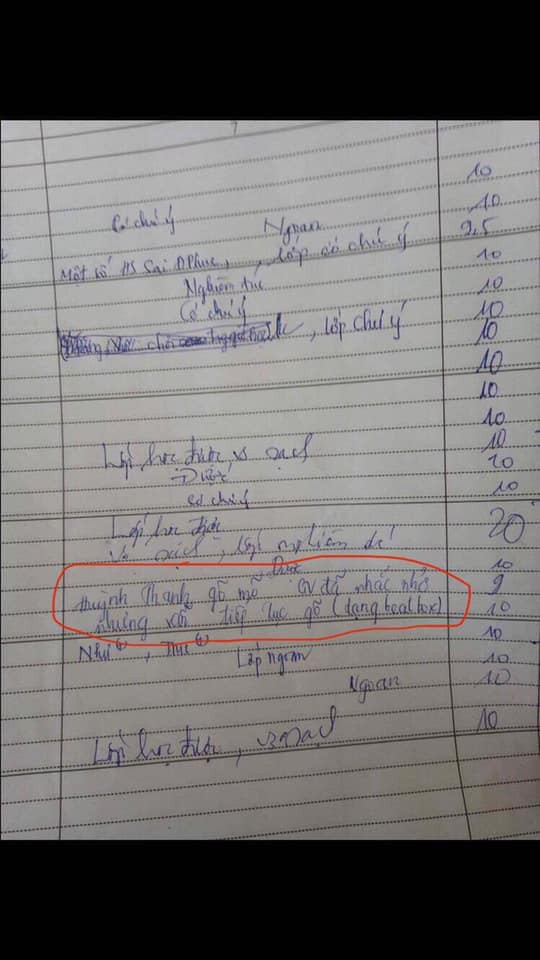 10
10
Có chú ý Ngoan 9,5
Một số HS Phúc, , lớp có chú ý 10
Nghiêm túc 10
Có chú ý 10
, lớp chú ý 10
10
10
10
Lớp học được, vs sạch 10
Được 20
có chú ý 10
Lớp học được 20
vs sạch, lớp
Được 10
Huỳnh Thanh gõ mõ GV đã nhắc nhở 9
nhưng vẫn tiếp tục gõ (dạng beatbox) 10
Như, Thư Lớp ngoan 10
10
Ngoan 10
Lớp học được, vs sạch 10